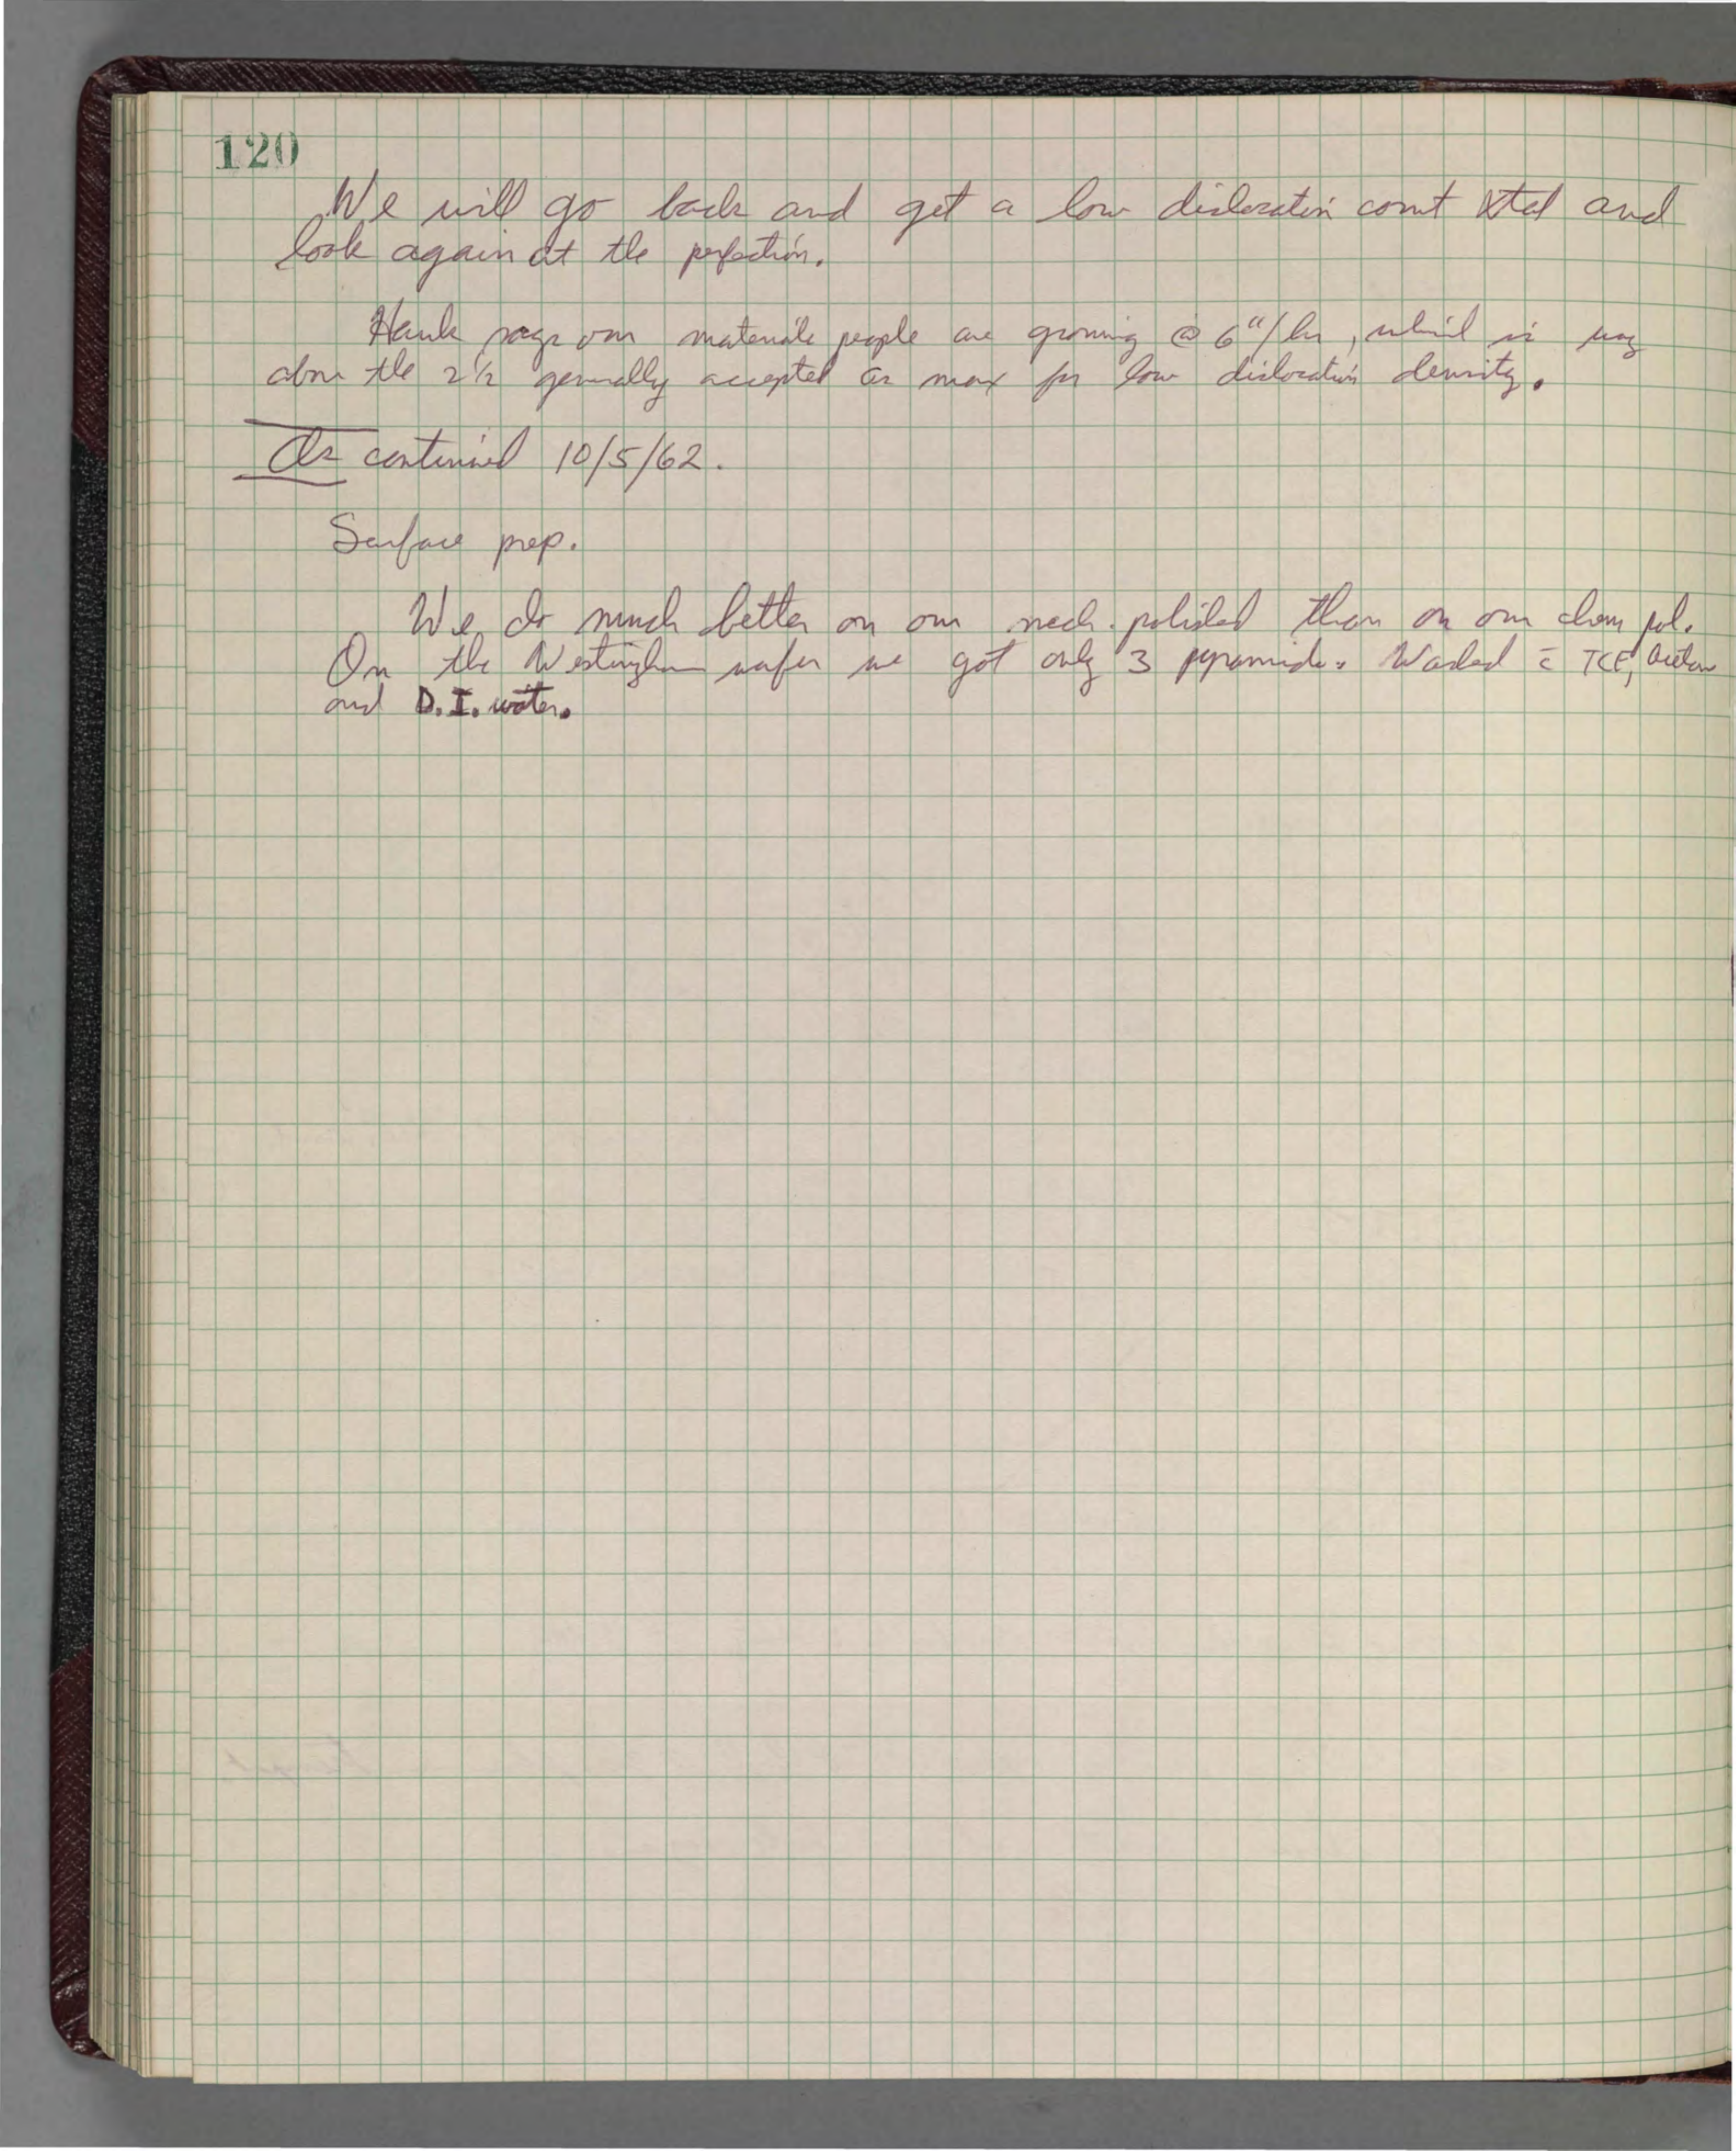 120
We will go back and get a low dislocation count Xtal and
look again at the perfection.
Hank says our materials people are growing @ 6"/hr, which is way
above the 2½ generally accepted as max for low dislocation density.
continued 10/5/62.
Surface prep.
We do much better on our mech. polished than on our chem pol.
On the Westinghouse wafer we got only 3 pyramids. Washed c̄ TCE, acetone
and D.I. water.